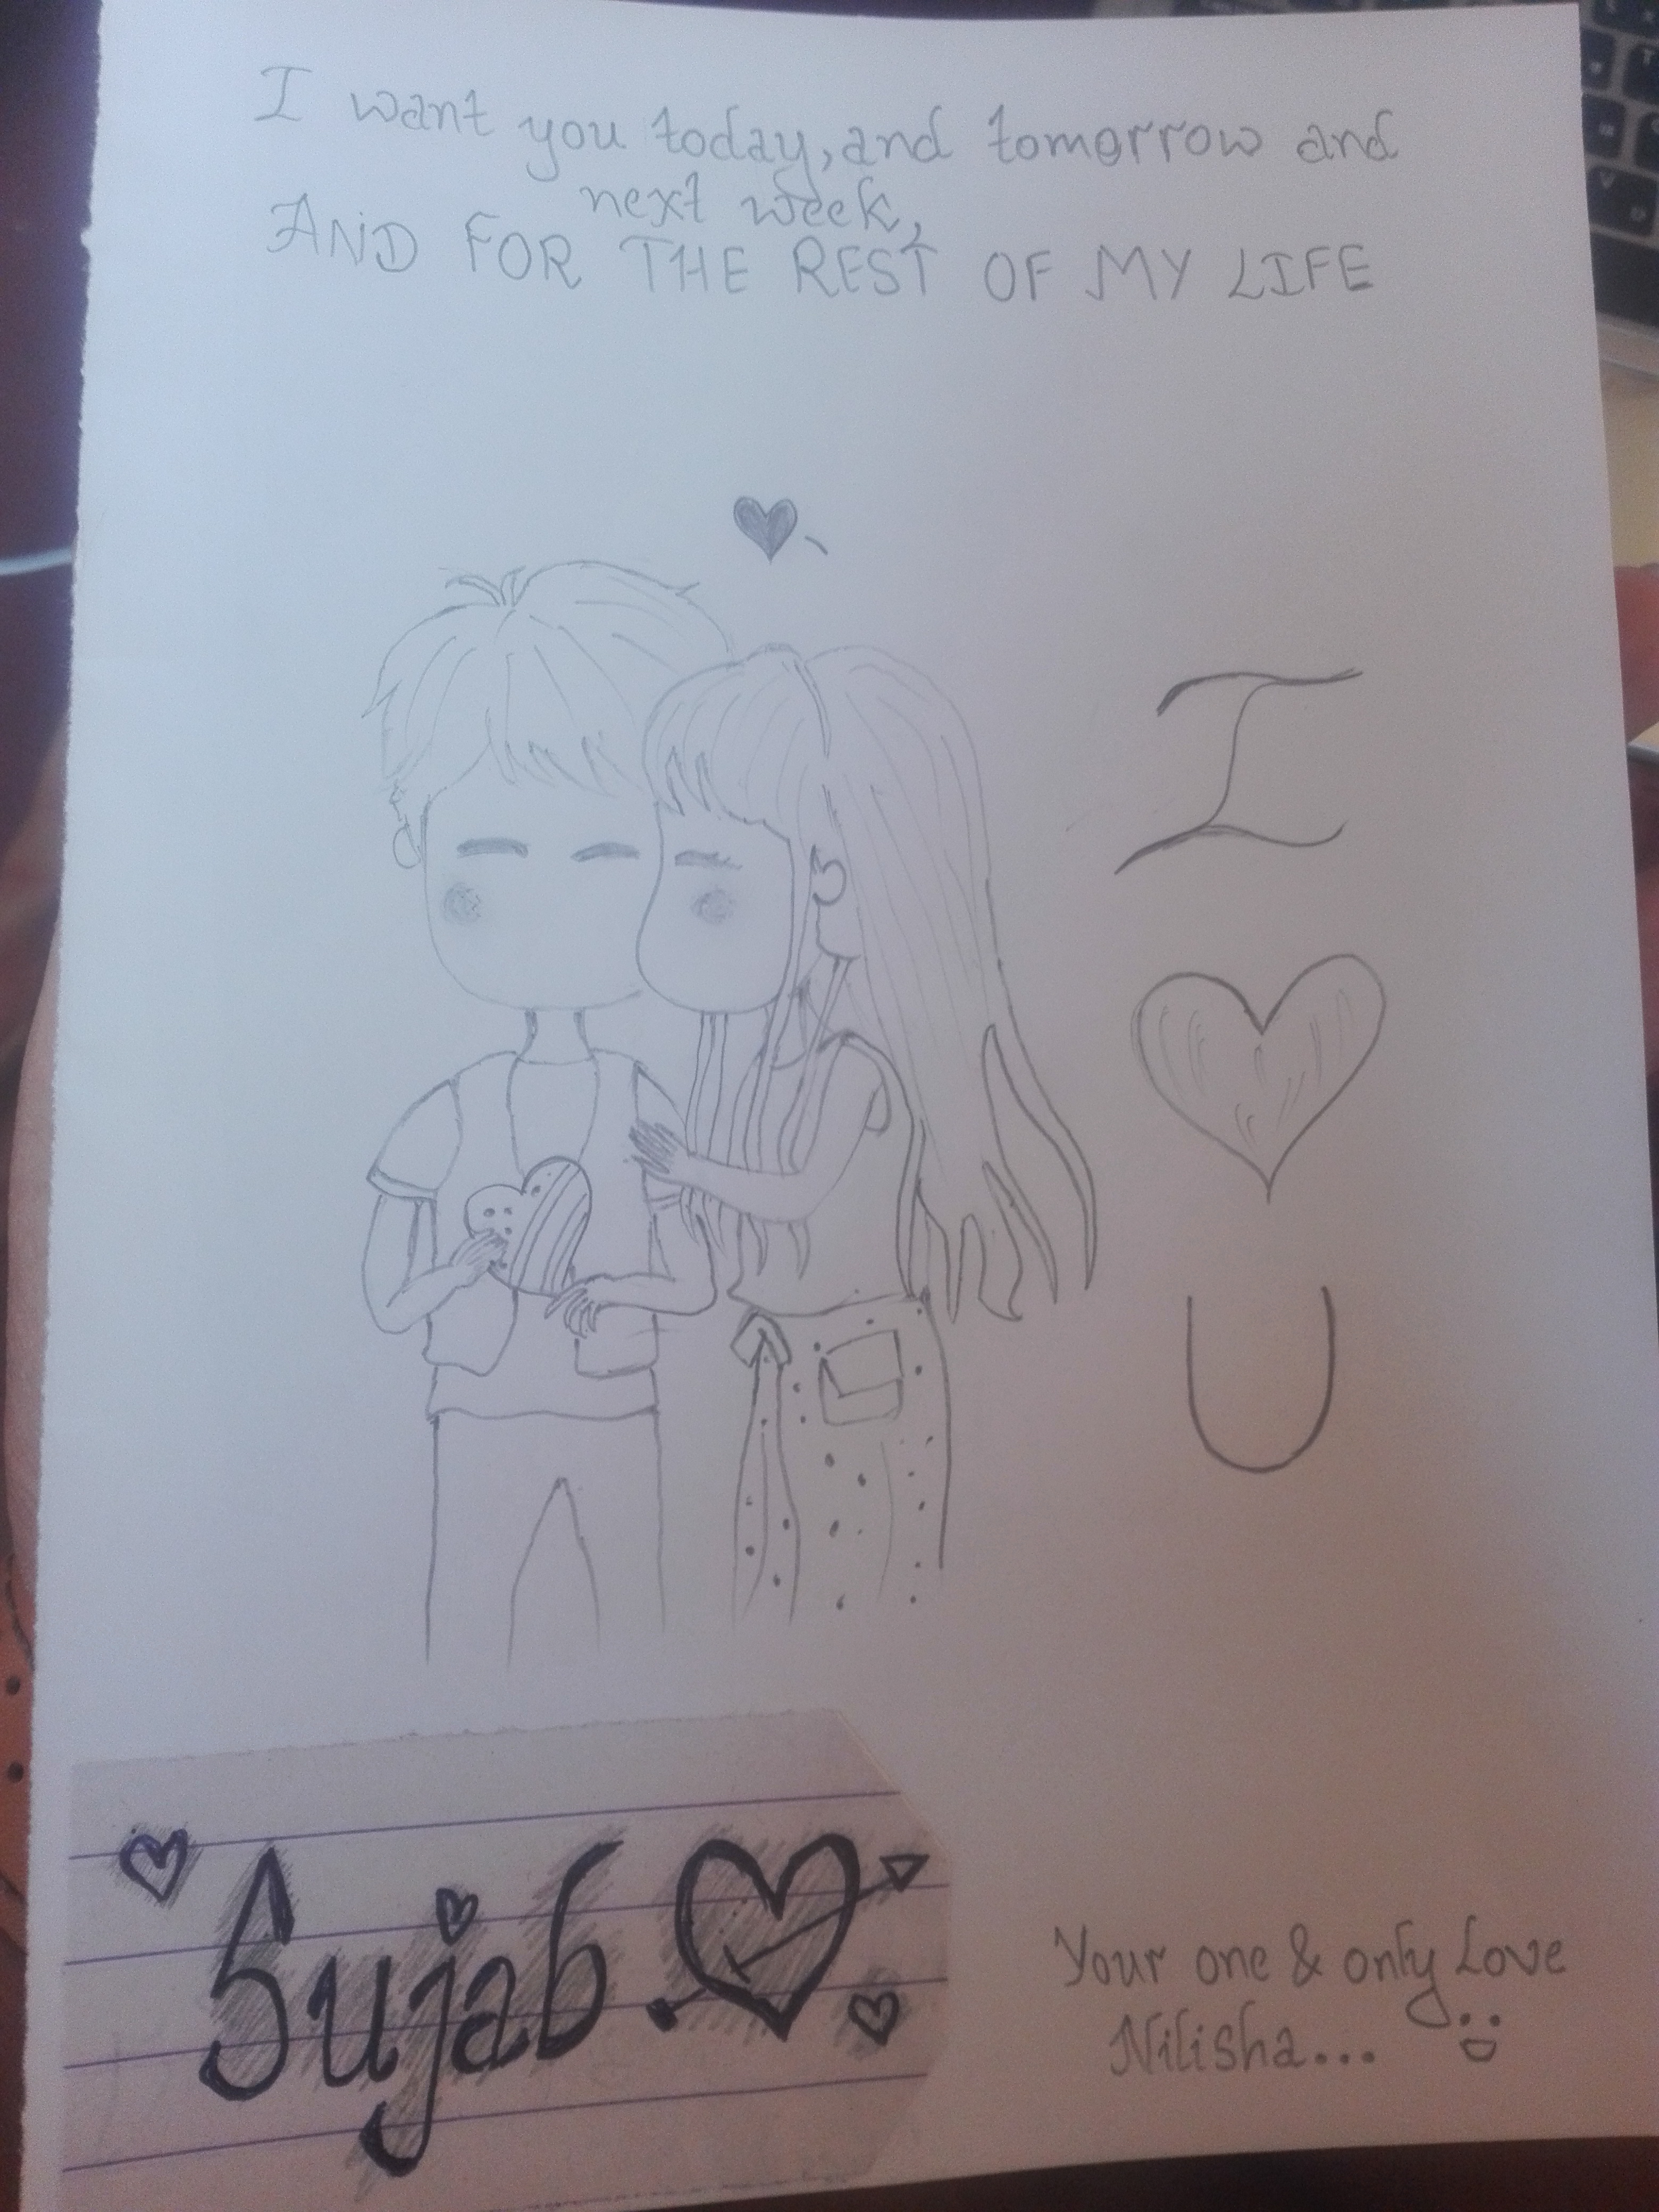 I want you today, and tomorrow and
next week,
AND FOR THE REST OF MY LIFE
I
U
Sujab
Your one & only Love
Nilisha...